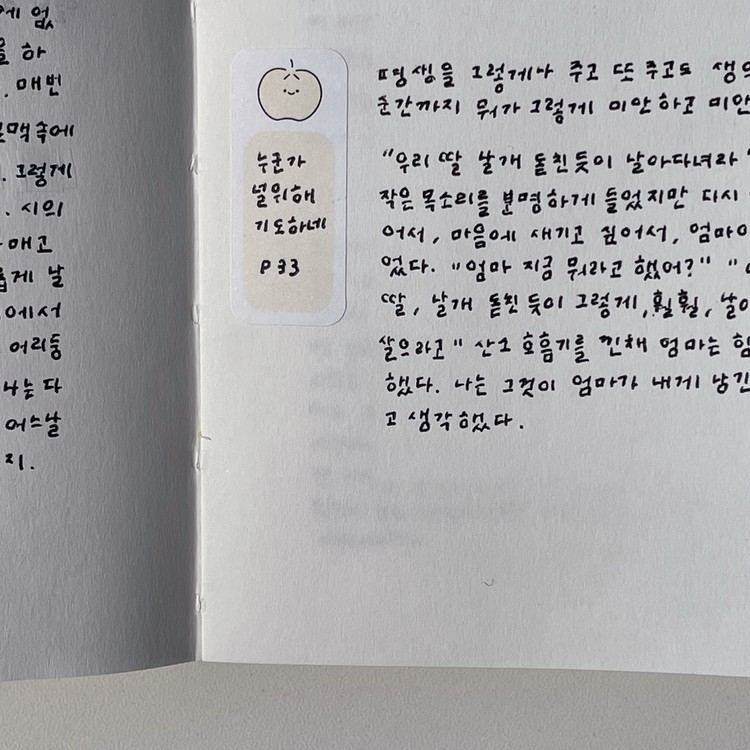 에 없
을 하
. 매번
맥속에
. 그렇게
. 시의
매고
롭게 날
에서
어리둥
나는 다
어스날
지.
누군가
널위해
기도하네
P 33
평생을 그렇게나 주고 또 주고도 생의
순간까지 뭐가 그렇게 미안하고 미안
"우리 딸 날개 돋친듯이 날아다녀라"
작은 목소리를 분명하게 들었지만 다시
어서, 마음에 새기고 싶어서, 엄마에
었다. "엄마 지금 뭐라고 했어?" "
딸, 날개 돋친듯이 그렇게, 훨훨, 날아
살으라고" 산소 호흡기를 낀채 엄마는 힘
했다. 나는 그것이 엄마가 내게 남긴
고 생각했다.